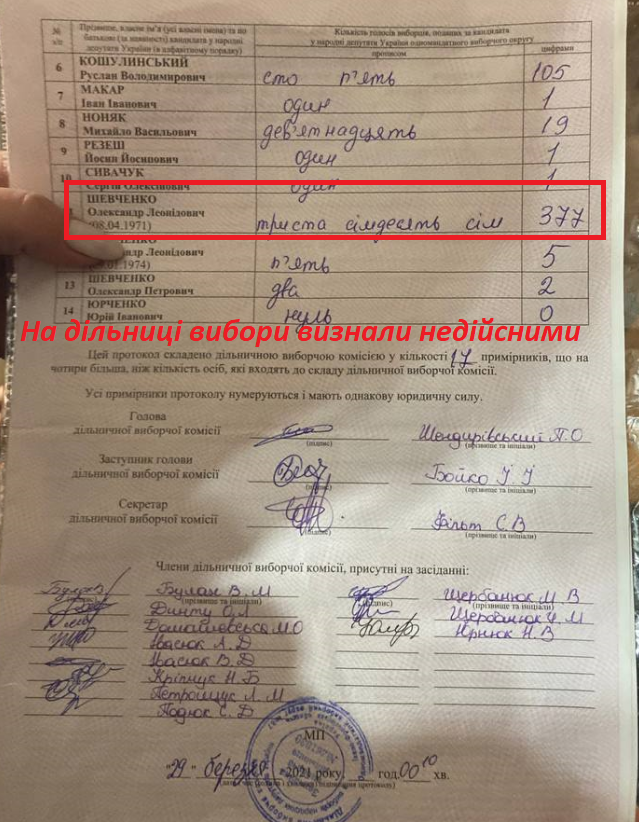 №
з/п
Прізвище, власне ім'я (усі власні імена) та по
батькові (за наявності) кандидата у народні
депутати України (в алфавітному порядку)
Кількість голосів виборців, поданих за кандидата
у народні депутати України одномандатного виборчого округу
прописом
цифрами
6 КОШУЛИНСЬКИЙ
Руслан Володимирович сто п'ять 105
7 МАКАР
Іван Іванович один 1
8 НОНЯК
Михайло Васильович дев'ятнадцять 19
9 РЕЗЕШ
Йосип Йосипович один 1
10 СИВАЧУК
Сергій Олексійович один 1
ШЕВЧЕНКО
Олександр Леонідович
(08.04.1971) триста сімдесять сім 377
Леонідович
1974) п'ять 5
13 ШЕВЧЕНКО
Олександр Петрович два 2
14 ЮРЧЕНКО
Юрій Іванович нуль 0
На дільниці вибори визнали недійсними
Цей протокол складено дільничною виборчою комісією у кількості 17 примірників, що на
чотири більша, ніж кількість осіб, які входять до складу дільничної виборчої комісії.
Усі примірники протоколу нумеруються і мають однакову юридичну силу.
Голова
дільничної виборчої комісії П.О
(підпис) (прізвище та ініціали)
Заступник голови
дільничної виборчої комісії Бойко
(підпис) (прізвище та ініціали)
Секретар
дільничної виборчої комісії Фільт С.В
(підпис) (прізвище та ініціали)
Члени дільничної виборчої комісії, присутні на засіданні:
Булах В.М Щербанюк М.В
(підпис) (прізвище та ініціали) (підпис) (прізвище та ініціали)
О.М Щербанюк М
М.О Н.В
Івасюк Л.Д
Івасюк В.Д
Кріпчук Н.Б
Петрощук Л.М
С.Д
МП
"29" березня 2021 року, год. 00 хв.